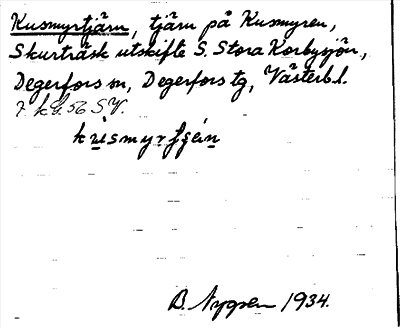 Kusmyrtjärn, tjärn på Kusmyren,
Skurträsk utskifte S. Stora Korbysjön,
Degerfors sn, Degerfors tg, Västerb. l.
7 kl. 56 SV.
B. Nygren 1934.